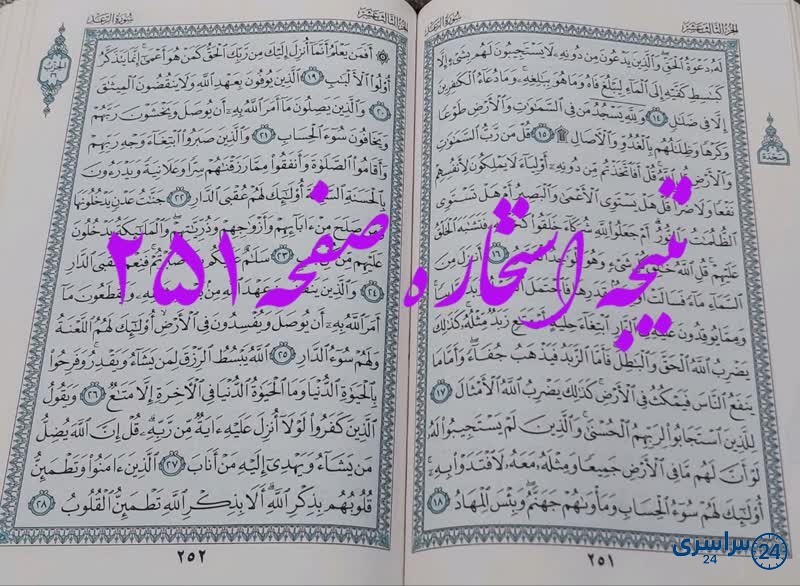 الجزء الثالث عشر
سورة الرعد
لَهُۥ دَعْوَةُ ٱلْحَقِّ وَٱلَّذِينَ يَدْعُونَ مِن دُونِهِۦ لَا يَسْتَجِيبُونَ لَهُم بِشَىْءٍ إِلَّا
كَبَٰسِطِ كَفَّيْهِ إِلَى ٱلْمَآءِ لِيَبْلُغَ فَاهُ وَمَا هُوَ بِبَٰلِغِهِۦ وَمَا دُعَآءُ ٱلْكَٰفِرِينَ
إِلَّا فِى ضَلَٰلٍ ١٤ وَلِلَّهِ يَسْجُدُ مَن فِى ٱلسَّمَٰوَٰتِ وَٱلْأَرْضِ طَوْعًا
وَكَرْهًا وَظِلَٰلُهُم بِٱلْغُدُوِّ وَٱلْءَاصَالِ ۩ ١٥ قُلْ مَن رَّبُّ ٱلسَّمَٰوَٰتِ
وَٱلْأَرْضِ قُلِ ٱللَّهُ قُلْ أَفَٱتَّخَذْتُم مِّن دُونِهِۦٓ أَوْلِيَآءَ لَا يَمْلِكُونَ لِأَنفُسِهِمْ
نَفْعًا وَلَا ضَرًّا قُلْ هَلْ يَسْتَوِى ٱلْأَعْمَىٰ وَٱلْبَصِيرُ أَمْ هَلْ تَسْتَوِى
ٱلظُّلُمَٰتُ وَٱلنُّورُ أَمْ جَعَلُوا۟ لِلَّهِ شُرَكَآءَ خَلَقُوا۟ فَتَشَٰبَهَ ٱلْخَلْقُ
عَلَيْهِمْ قُلِ ٱللَّهُ شَىْءٍ وَهُوَ ١٦ أَنزَلَ مِنَ
ٱلسَّمَآءِ مَآءً فَسَالَتْ فَٱحْتَمَلَ
وَمِمَّا يُوقِدُونَ عَلَيْهِ فِى ٱلنَّارِ ٱبْتِغَآءَ حِلْيَةٍ أَوْ مَتَٰعٍ زَبَدٌ مِّثْلُهُۥ كَذَٰلِكَ
يَضْرِبُ ٱللَّهُ ٱلْحَقَّ وَٱلْبَٰطِلَ فَأَمَّا ٱلزَّبَدُ فَيَذْهَبُ جُفَآءً وَأَمَّا مَا
يَنفَعُ ٱلنَّاسَ فَيَمْكُثُ فِى ٱلْأَرْضِ كَذَٰلِكَ يَضْرِبُ ٱللَّهُ ٱلْأَمْثَالَ ١٧
لِلَّذِينَ ٱسْتَجَابُوا۟ لِرَبِّهِمُ ٱلْحُسْنَىٰ وَٱلَّذِينَ لَمْ يَسْتَجِيبُوا۟ لَهُۥ
لَوْ أَنَّ لَهُم مَّا فِى ٱلْأَرْضِ جَمِيعًا وَمِثْلَهُۥ مَعَهُۥ لَٱفْتَدَوْا۟ بِهِۦٓ
أُو۟لَٰٓئِكَ لَهُمْ سُوٓءُ ٱلْحِسَابِ وَمَأْوَىٰهُمْ جَهَنَّمُ وَبِئْسَ ٱلْمِهَادُ ١٨
سجدة
٢٥١
الجزء الثالث عشر
سورة الرعد
۞ أَفَمَن يَعْلَمُ أَنَّمَآ أُنزِلَ إِلَيْكَ مِن رَّبِّكَ ٱلْحَقُّ كَمَنْ هُوَ أَعْمَىٰٓ إِنَّمَا يَتَذَكَّرُ
أُو۟لُوا۟ ٱلْأَلْبَٰبِ ١٩ ٱلَّذِينَ يُوفُونَ بِعَهْدِ ٱللَّهِ وَلَا يَنقُضُونَ ٱلْمِيثَٰقَ
٢٠ وَٱلَّذِينَ يَصِلُونَ مَآ أَمَرَ ٱللَّهُ بِهِۦٓ أَن يُوصَلَ وَيَخْشَوْنَ رَبَّهُمْ
وَيَخَافُونَ سُوٓءَ ٱلْحِسَابِ ٢١ وَٱلَّذِينَ صَبَرُوا۟ ٱبْتِغَآءَ وَجْهِ رَبِّهِمْ
وَأَقَامُوا۟ ٱلصَّلَوٰةَ وَأَنفَقُوا۟ مِمَّا رَزَقْنَٰهُمْ سِرًّا وَعَلَانِيَةً وَيَدْرَءُونَ
بِٱلْحَسَنَةِ ٱلسَّيِّئَةَ أُو۟لَٰٓئِكَ لَهُمْ عُقْبَى ٱلدَّارِ ٢٢ جَنَّٰتُ عَدْنٍ يَدْخُلُونَهَا
وَمَن صَلَحَ مِنْ ءَابَآئِهِمْ وَأَزْوَٰجِهِمْ وَذُرِّيَّٰتِهِمْ وَٱلْمَلَٰٓئِكَةُ يَدْخُلُونَ
عَلَيْهِم مِّن ٢٣ سَلَٰمٌ صَبَرْتُمْ فَنِعْمَ عُقْبَى ٱلدَّارِ
٢٤ وَٱلَّذِينَ عَهْدَ ٱللَّهِ مِنۢ وَيَقْطَعُونَ مَآ
أَمَرَ ٱللَّهُ بِهِۦٓ أَن يُوصَلَ وَيُفْسِدُونَ فِى ٱلْأَرْضِ أُو۟لَٰٓئِكَ لَهُمُ ٱللَّعْنَةُ
وَلَهُمْ سُوٓءُ ٱلدَّارِ ٢٥ ٱللَّهُ يَبْسُطُ ٱلرِّزْقَ لِمَن يَشَآءُ وَيَقْدِرُ وَفَرِحُوا۟
بِٱلْحَيَوٰةِ ٱلدُّنْيَا وَمَا ٱلْحَيَوٰةُ ٱلدُّنْيَا فِى ٱلْءَاخِرَةِ إِلَّا مَتَٰعٌ ٢٦ وَيَقُولُ
ٱلَّذِينَ كَفَرُوا۟ لَوْلَآ أُنزِلَ عَلَيْهِ ءَايَةٌ مِّن رَّبِّهِۦ قُلْ إِنَّ ٱللَّهَ يُضِلُّ
مَن يَشَآءُ وَيَهْدِىٓ إِلَيْهِ مَنْ أَنَابَ ٢٧ ٱلَّذِينَ ءَامَنُوا۟ وَتَطْمَئِنُّ
قُلُوبُهُم بِذِكْرِ ٱللَّهِ أَلَا بِذِكْرِ ٱللَّهِ تَطْمَئِنُّ ٱلْقُلُوبُ ٢٨
الحزب ٢٦
٢٥٢
نتیجه استخاره صفحه ۲۵۱
سراسری 24
24